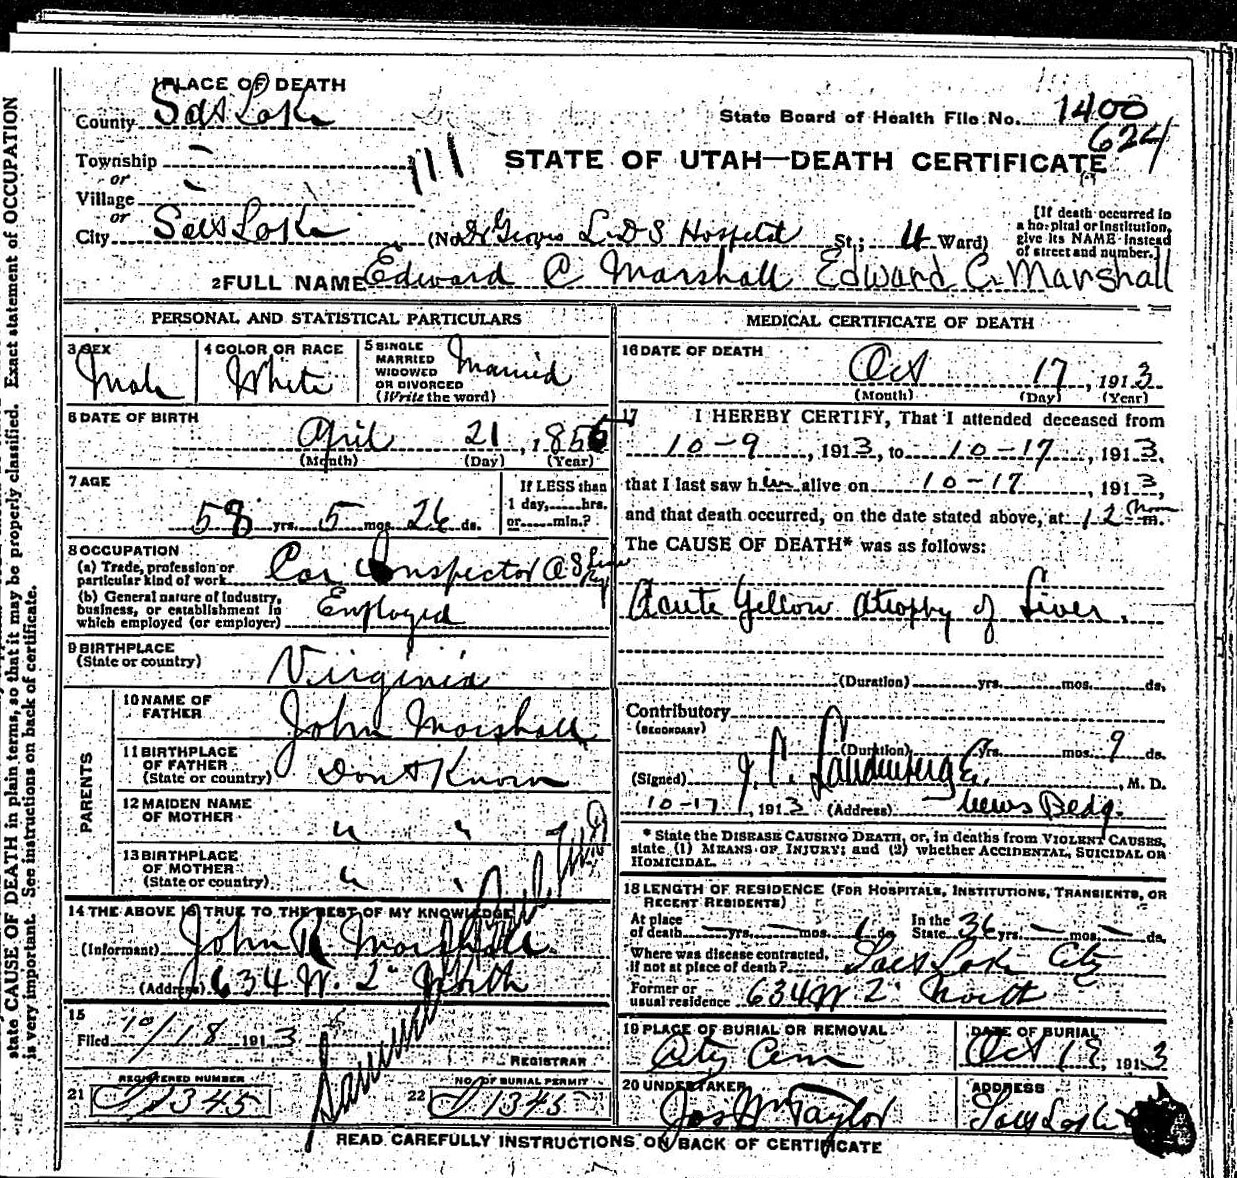 state CAUSE OF DEATH in plain terms, so that it may be properly classified. Exact statement of OCCUPATION
is very important. See instructions on back of certificate.
1 PLACE OF DEATH
County Salt Lake
State Board of Health File No. 1400
624
Township –
or
111
STATE OF UTAH—DEATH CERTIFICATE
Village –
or
City Salt Lake (No. Dr Groves L.D.S Hospital St.; 4 Ward)
[If death occurred in a hospital or institution, give its NAME instead of street and number.]
2 FULL NAME Edward C Marshall Edward C. Marshall
PERSONAL AND STATISTICAL PARTICULARS
3 SEX Male
4 COLOR OR RACE White
5 SINGLE MARRIED WIDOWED OR DIVORCED (Write the word) Married
6 DATE OF BIRTH
April 21, 185
(Month) (Day) (Year)
7 AGE
58 yrs. 5 mos. 26 ds.
If LESS than 1 day, hrs. or min.?
8 OCCUPATION
(a) Trade, profession or particular kind of work Car Inspector O.S.
(b) General nature of industry, business, or establishment in which employed (or employer) Employed
9 BIRTHPLACE (State or country) Virginia
PARENTS
10 NAME OF FATHER John Marshall
11 BIRTHPLACE OF FATHER (State or country) Dont Know
12 MAIDEN NAME OF MOTHER " "
13 BIRTHPLACE OF MOTHER (State or country) " "
14 THE ABOVE IS TRUE TO THE BEST OF MY KNOWLEDGE
(Informant) John R Marshall
(Address) 634 W. 2" North
15
Filed 10/18 1913
REGISTRAR
REGISTERED NUMBER
21 J1345
NO. OF BURIAL PERMIT
22 J1345
MEDICAL CERTIFICATE OF DEATH
16 DATE OF DEATH
Oct 17, 1913
(Month) (Day) (Year)
17 I HEREBY CERTIFY, That I attended deceased from
10-9, 1913, to 10-17, 1913,
that I last saw him alive on 10-17, 1913,
and that death occurred, on the date stated above, at 12 noon m.
The CAUSE OF DEATH* was as follows:
Acute Yellow Atrophy of Liver.
(Duration) yrs. mos. ds.
Contributory
(SECONDARY)
(Duration) yrs. mos. 9 ds.
(Signed) J. C. Landenberger, M. D.
10-17, 1913 (Address) News Bedg.
* State the DISEASE CAUSING DEATH, or, in deaths from VIOLENT CAUSES, state (1) MEANS OF INJURY; and (2) whether ACCIDENTAL, SUICIDAL OR HOMICIDAL.
18 LENGTH OF RESIDENCE (FOR HOSPITALS, INSTITUTIONS, TRANSIENTS, OR RECENT RESIDENTS)
At place of death – yrs. – mos. 1 ds. In the State 36 yrs. – mos. – ds.
Where was disease contracted, if not at place of death? Salt Lake City
Former or usual residence 634 W 2" North
19 PLACE OF BURIAL OR REMOVAL
City Cem
DATE OF BURIAL
Oct 1913
20 UNDERTAKER
Jos Wm Taylor
ADDRESS
Salt Lake
READ CAREFULLY INSTRUCTIONS ON BACK OF CERTIFICATE